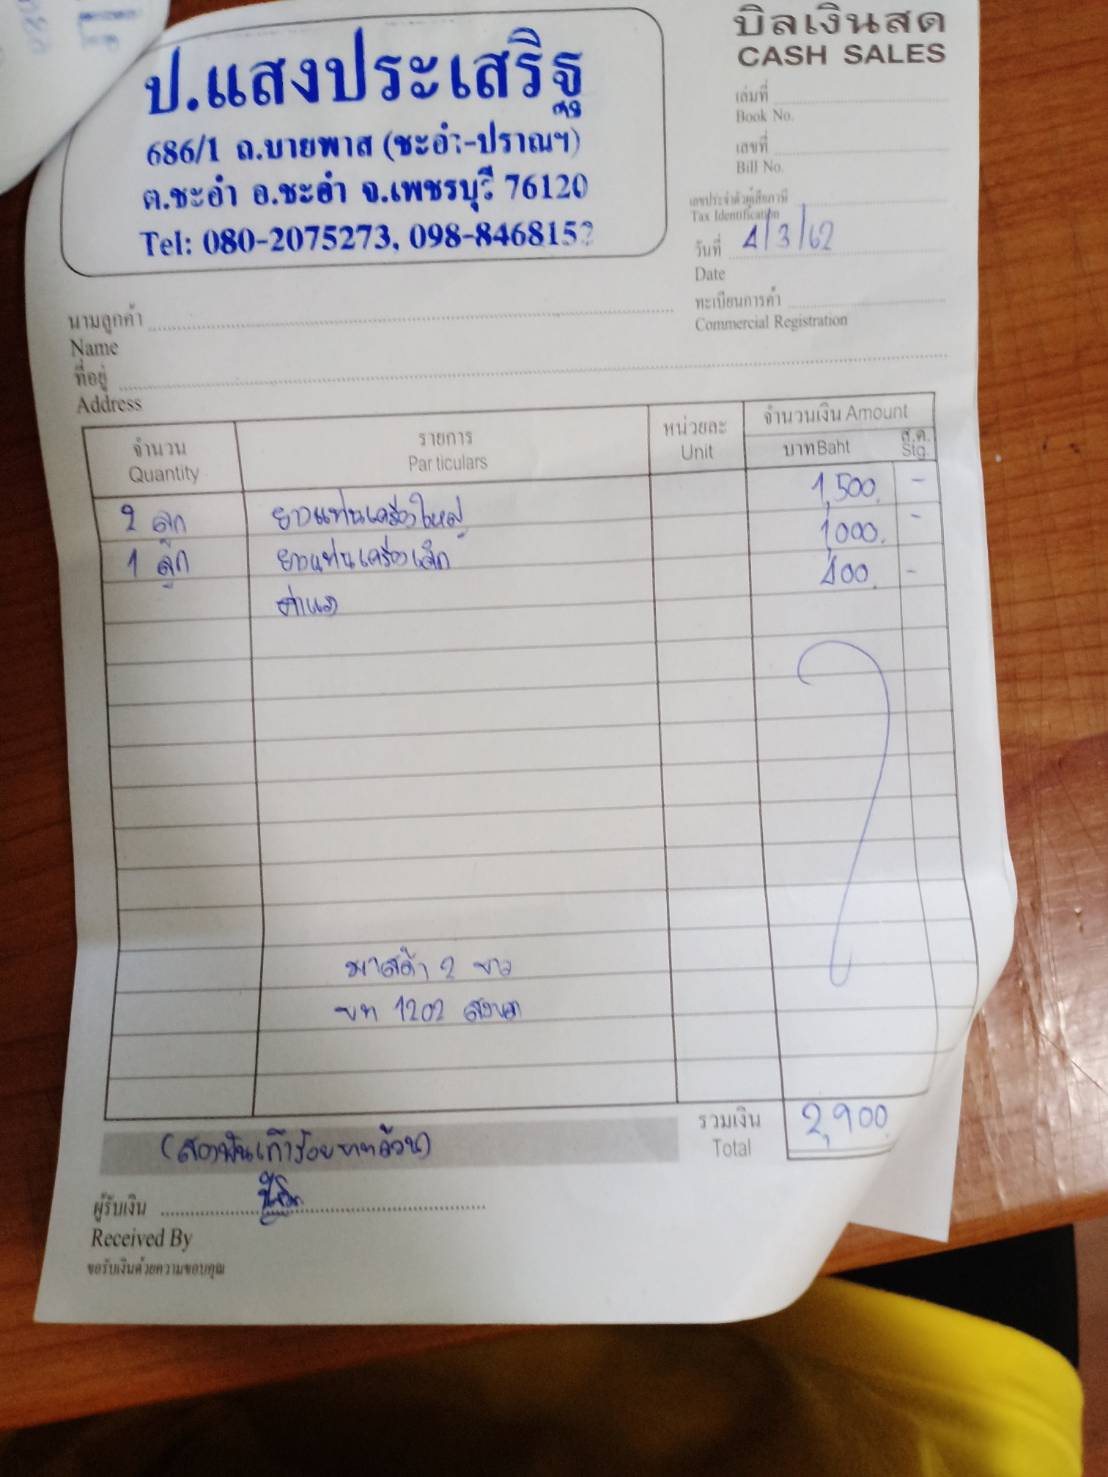 บิลเงินสด
CASH SALES
ป.แสงประเสริฐ
686/1 ถ.บายพาส (ชะอำ-ปราณฯ)
ต.ชะอำ อ.ชะอำ จ.เพชรบุรี 76120
Tel: 080-2075273, 098-8468152
เล่มที่
Book No.
เลขที่
Bill No.
เลขประจำตัวผู้เสียภาษี
Tax Identification
วันที่ 4/3/62
Date
ทะเบียนการค้า
Commercial Registration
นามลูกค้า
Name
ที่อยู่
Address
จำนวน รายการ หน่วยละ จำนวนเงิน Amount
Quantity Particulars Unit บาท Baht ส.ต. Stg.
2 ลูก ยางแท่นเครื่องใหญ่ 1,500 -
1 ลูก ยางแท่นเครื่องเล็ก 1,000 -
ค่าแรง 400 -
มาสด้า 2 ขาว
ขท 1202 สงขลา
รวมเงิน 2,900
Total
(สองพันเก้าร้อยบาทถ้วน)
ผู้รับเงิน
Received By
ขอรับเงินด้วยความขอบคุณ